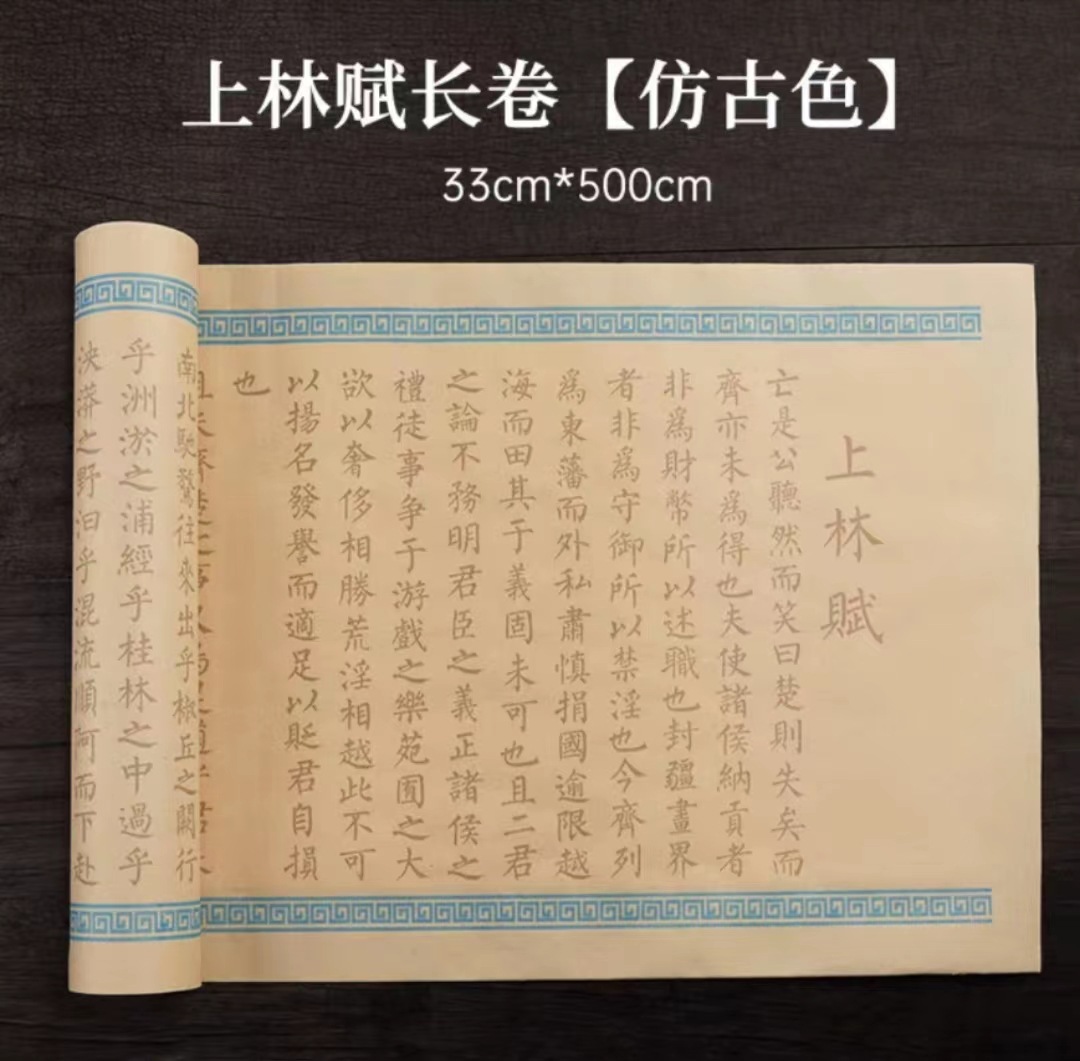 上林赋长卷【仿古色】
33cm*500cm
上林賦
亡是公聽然而笑曰楚則失矣而
齊亦未爲得也夫使諸侯納貢者
非爲財幣所以述職也封疆畫界
者非爲守御所以禁淫也今齊列
爲東藩而外私肅慎捐國逾限越
海而田其于義固未可也且二君
之論不務明君臣之義正諸侯之
禮徒事争于游戲之樂苑囿之大
欲以奢侈相勝荒淫相越此不可
以揚名發譽而適足以貶君自損
也
南北馳騖往來出乎椒丘之闕行
乎洲淤之浦經乎桂林之中過乎
泱漭之野汩乎混流順阿而下赴